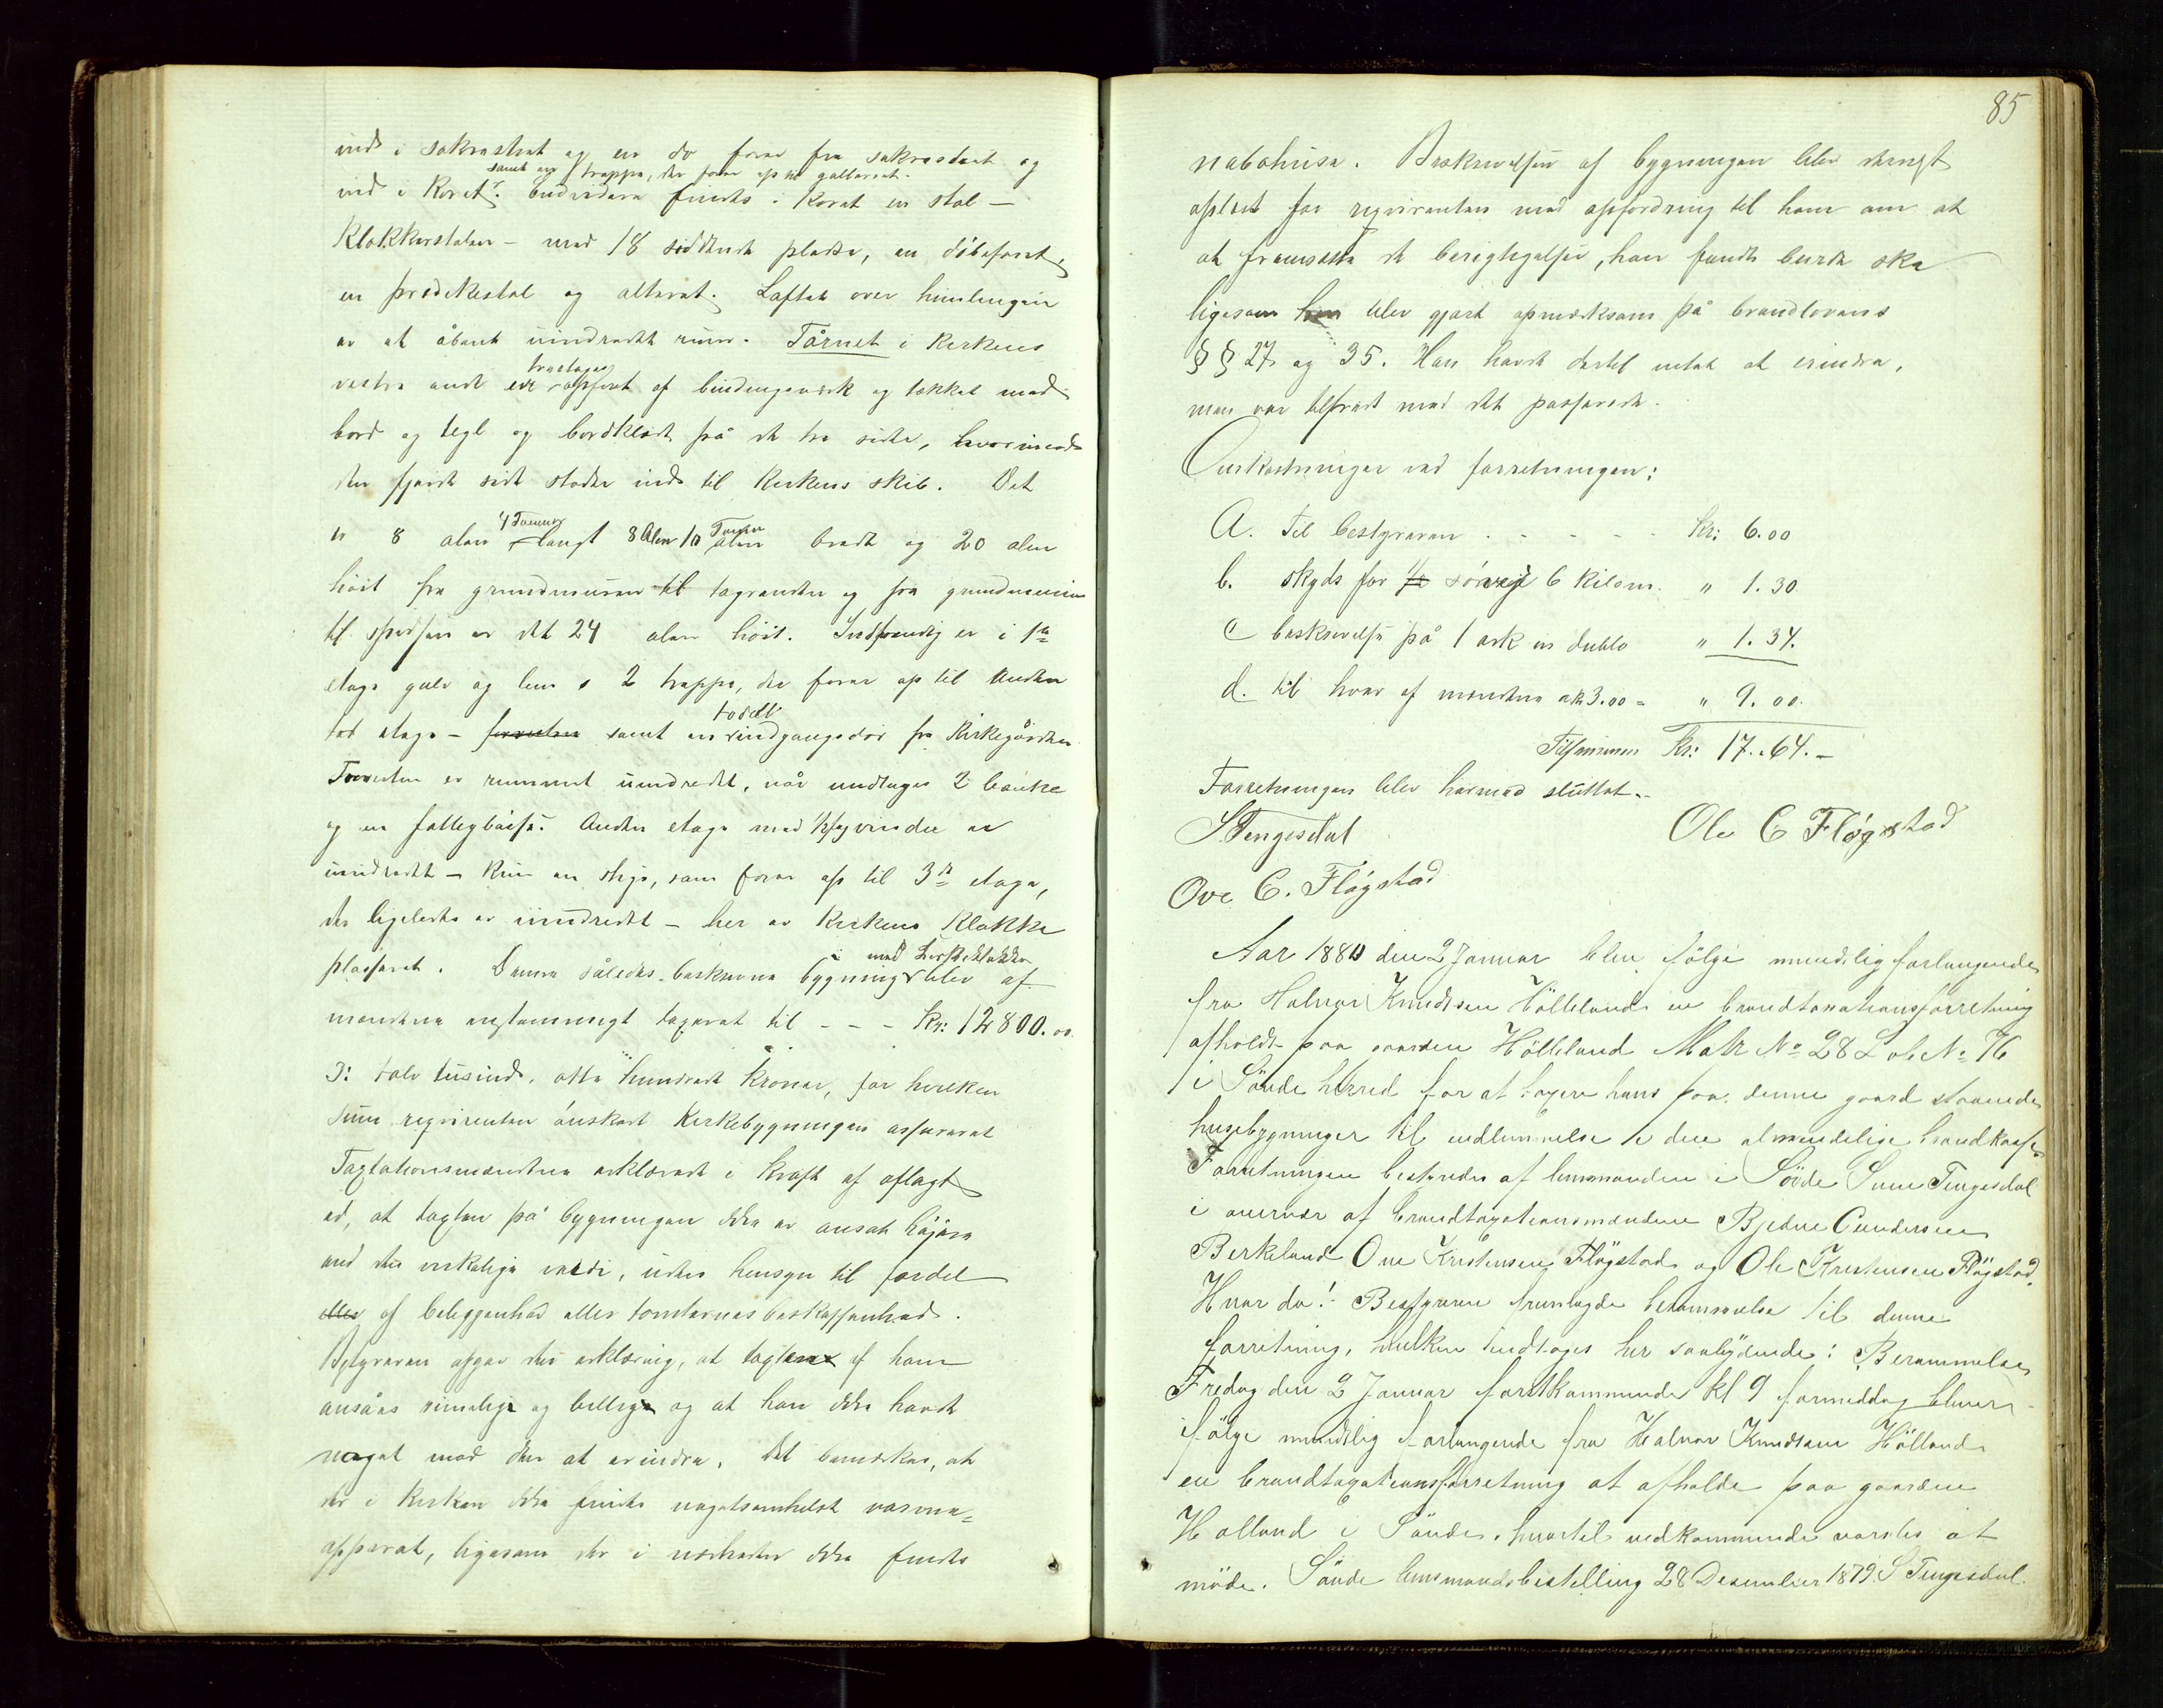 ind i sakrastiet og en do fører fra sakrastiet og
samt en trappe, der fører op til galleriet.
ind i koret. Endvidere findes i koret en stol —
Klokkerstolen — med 18 siddende pladse, en döbefont,
en prædikestol og alteret. Loftet over himlingen
er et åbent uindredt rum. Tårnet i kirkens
treetages
vestre ende er opført af bindingsverk og tækket med
bord og tegl og bordklædt på de tre sider, hvorimod
den fjerde side støder ind til kirkens skib. Det
4 Tommer Tommer
er 8 alen langt 8 Alen 10 alen bredt og 20 alen
höit fra grundmuren til tagranden og fra grundmuren
til spidsen er det 24 alen höit. Indvendig er i 1ste
etage gulv og lem & 2 trappe, der fører op til anden
todelt
etage — samt en indgangsdör fra kirkegården
Forresten er rummet uindredt, når undtages 2 bænke
og en fattigbösse. Anden etage med 1 fagvindu er
uindredt — kun en stige, som fører op til 3de etage,
der ligeledes er uindredt — her er kirkens klokke
med kirkeklokken
plasseret. Denne således beskrevne bygning blev af
mændene enstemmigt taxeret til - - - Kr: 12800.00
ɔ: tolv tusinde, otte hundrede kroner, for hvilken
sum reqvirenten önskede kirkebygningen assureret
Taxtationsmændene erklærede i kraft af aflagt
ed, at taxten på bygningen ikke er ansat höjere
end den virkelige værdi, uden hensyn til fordel
eller af beliggenhed eller tomternes beskaffenhed.
Bestyreren afgav den erklæring, at taxten af ham
ansåes rimelige og billige og at han ikke havde
noget mod den at erindre. Det bemærkes, at
der i kirken ikke findes nogetsomhelst varme=
apparat, ligesom der i nærheden ikke findes
85
nabohuse. Beskrivelsen af bygningen blev derneft
oplæst for reqvirenten med opfordring til ham om at
at fremsætte de berigtigelser, han fandt burde ske
ligesom han blev gjort opmærksom på brandlovens
§§ 27 og 35. Han havde dertil intet at erindre,
men var tilfreds med det passerede.
Omkostninger ved forretningen:
A. Til bestyreren - - - - - kr: 6.00
b. skyds for 6 kilom. " 1.30
c beskrivelse på 1 ark en dublo " 1.34.
d. til hver af mændene a kr 3.00 = " 9.00.
Tilsammen kr: 17.64.—
Forretningen blev hermed sluttet.
S Tengesdal Ole C Fløgstad
Ove C. Fløgstad
Aar 1880 den 2 Januar blev fölge mundtlig forlangende
fra Halvor Knudsen Hölleland en brandtaxationsforretning
afholdt paa gaarden Hölleland Matr No 28 Lob No 76
i Sande herred for at taxere hans paa denne gaard staaende
husebygninger til indlemmelse i den almindelige brandkasse
Forretningen bestyredes af lensmanden i Söde Sven Tengesdal
i overvær af brandtaxationsmændene Bjedne Gundersen
Berkeland Ove Kristensen Flögstad og Ole Kristensen Flögstad.
Hvor da! Bestyreren fremlagde berammelse til denne
forretning, hvilken indtages her saalydende: Berammelse
Fredag den 2 Januar förstkommende kl 9 formiddag bliver
ifölge mundtlig forlangende fra Halvor Knudsen Hölland
en brandtaxationsforretning at afholde paa gaarden
Hölland i Sande, hvortil vedkommende varsles at
möde. Sande lensmandsbestilling 28 Desember 1879. S Tengesdal.